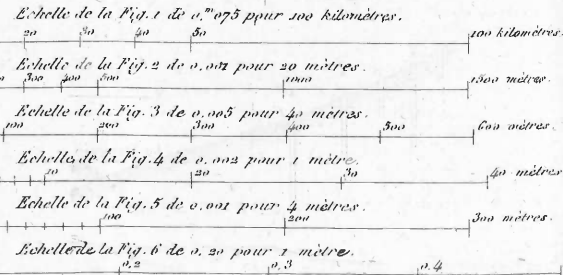 Echelle de la Fig. 1 de 0,ᵐ075 pour 100 kilomètres.
20 30 40 50 100 kilomètres.
Echelle de la Fig. 2 de 0,001 pour 20 mètres.
0 300 400 500 1000 1500 mètres.
Echelle de la Fig. 3 de 0,005 pour 40 mètres.
100 200 300 400 500 600 mètres.
Echelle de la Fig. 4 de 0,002 pour 1 mètre.
10 20 30 40 mètres.
Echelle de la Fig. 5 de 0,001 pour 4 mètres.
100 200 300 mètres.
Echelle de la Fig. 6 de 0,20 pour 1 mètre.
0,2 0,3 0,4